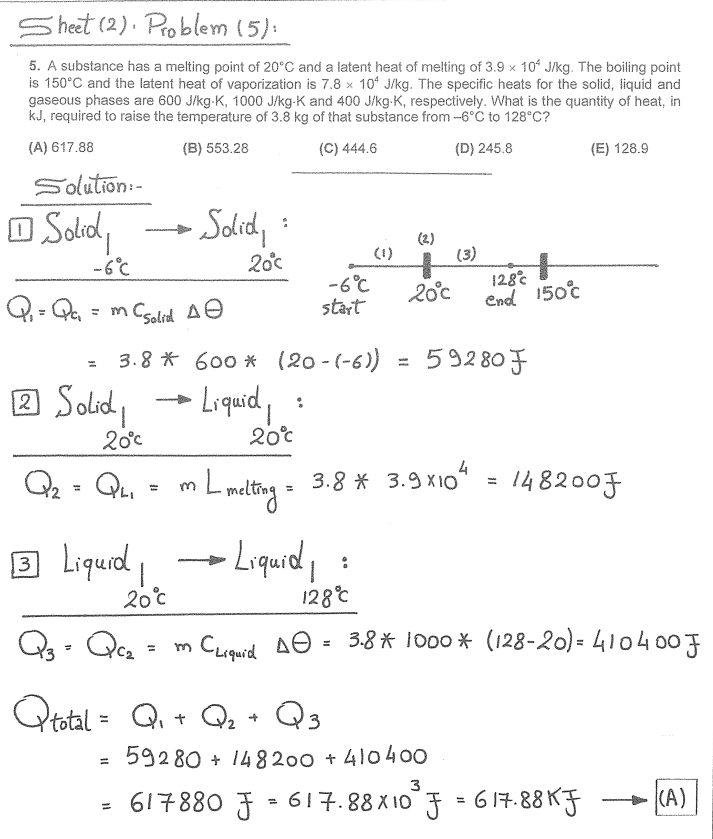 Sheet (2). Problem (5):
5. A substance has a melting point of 20°C and a latent heat of melting of 3.9 × 10⁴ J/kg. The boiling point
is 150°C and the latent heat of vaporization is 7.8 × 10⁴ J/kg. The specific heats for the solid, liquid and
gaseous phases are 600 J/kg·K, 1000 J/kg·K and 400 J/kg·K, respectively. What is the quantity of heat, in
kJ, required to raise the temperature of 3.8 kg of that substance from –6°C to 128°C?
(A) 617.88 (B) 553.28 (C) 444.6 (D) 245.8 (E) 128.9
Solution:-
1 Solid| → Solid| :
-6°C 20°C
(1) (2) (3)
-6°C 20°C 128°C 150°C
start end
Q₁ = Q_C₁ = m C_Solid ΔΘ
= 3.8 * 600 * (20 - (-6)) = 59280 J
2 Solid| → Liquid| :
20°C 20°C
Q₂ = Q_L₁ = m L_melting = 3.8 * 3.9 × 10⁴ = 148200 J
3 Liquid| → Liquid| :
20°C 128°C
Q₃ = Q_C₂ = m C_Liquid ΔΘ = 3.8 * 1000 * (128-20) = 410400 J
Q_total = Q₁ + Q₂ + Q₃
= 59280 + 148200 + 410400
= 617880 J = 617.88 × 10³ J = 617.88 KJ → (A)